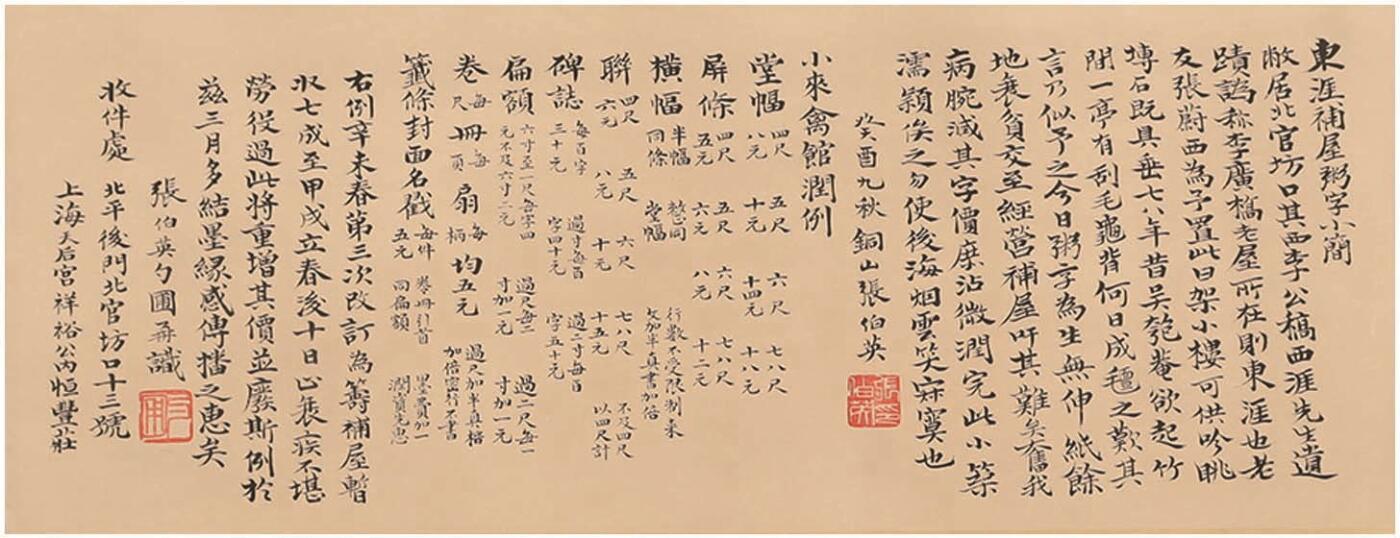 東涯補屋鬻字小簡
敝居北官坊口其西李公橋西涯先生遺
蹟譌称李廣橋老屋所在則東涯也老
友張蔚西為予置此曰架小樓可供吟眺
塼石既具垂七八年昔吴匏菴欲起竹
閒一亭有刮毛龜背何日成氊之歎其
言乃似予之今日鬻字為生無伸紙餘
地衰貧交至經營補屋吁其難矣奮我
病腕減其字價庶沾微潤完此小築
濡穎俟之勿使後海烟雲笑寂寞也
癸酉九秋銅山張伯英
小來禽館潤例
堂幅 四尺八元 五尺十元 六尺十四元 七八尺十八元
屏條 四尺五元 五尺六元 六尺八元 七八尺十二元
橫幅 半幅同條 整同堂幅 行數不受限制來文加半真書加倍
聯 四尺六元 五尺八元 六尺十元 七八尺十五元 不及四尺以四尺計
碑誌 每百字三十元 過寸每百字四十元 過二寸每百字五十元
扁額 六寸至一尺每字四元不及六寸二元 過尺每二寸加一元 過二尺每一寸加一元
卷每尺 冊每頁 扇每柄 均五元 過尺加半真楷加倍密行不書
籤條封面名戳 每件五元 卷冊引首同扁額 墨費加一潤資先惠
右例辛未春第三次改訂為籌補屋暫
收七成至甲戌立春後十日止衰疾不堪
勞役過此將重增其價並廢斯例於
兹三月多結墨緣感傳播之惠矣
張伯英勺圃再識
收件處 北平後門北官坊口十三號
上海天后宮祥裕公內恒豐莊
張印伯英
勺圃